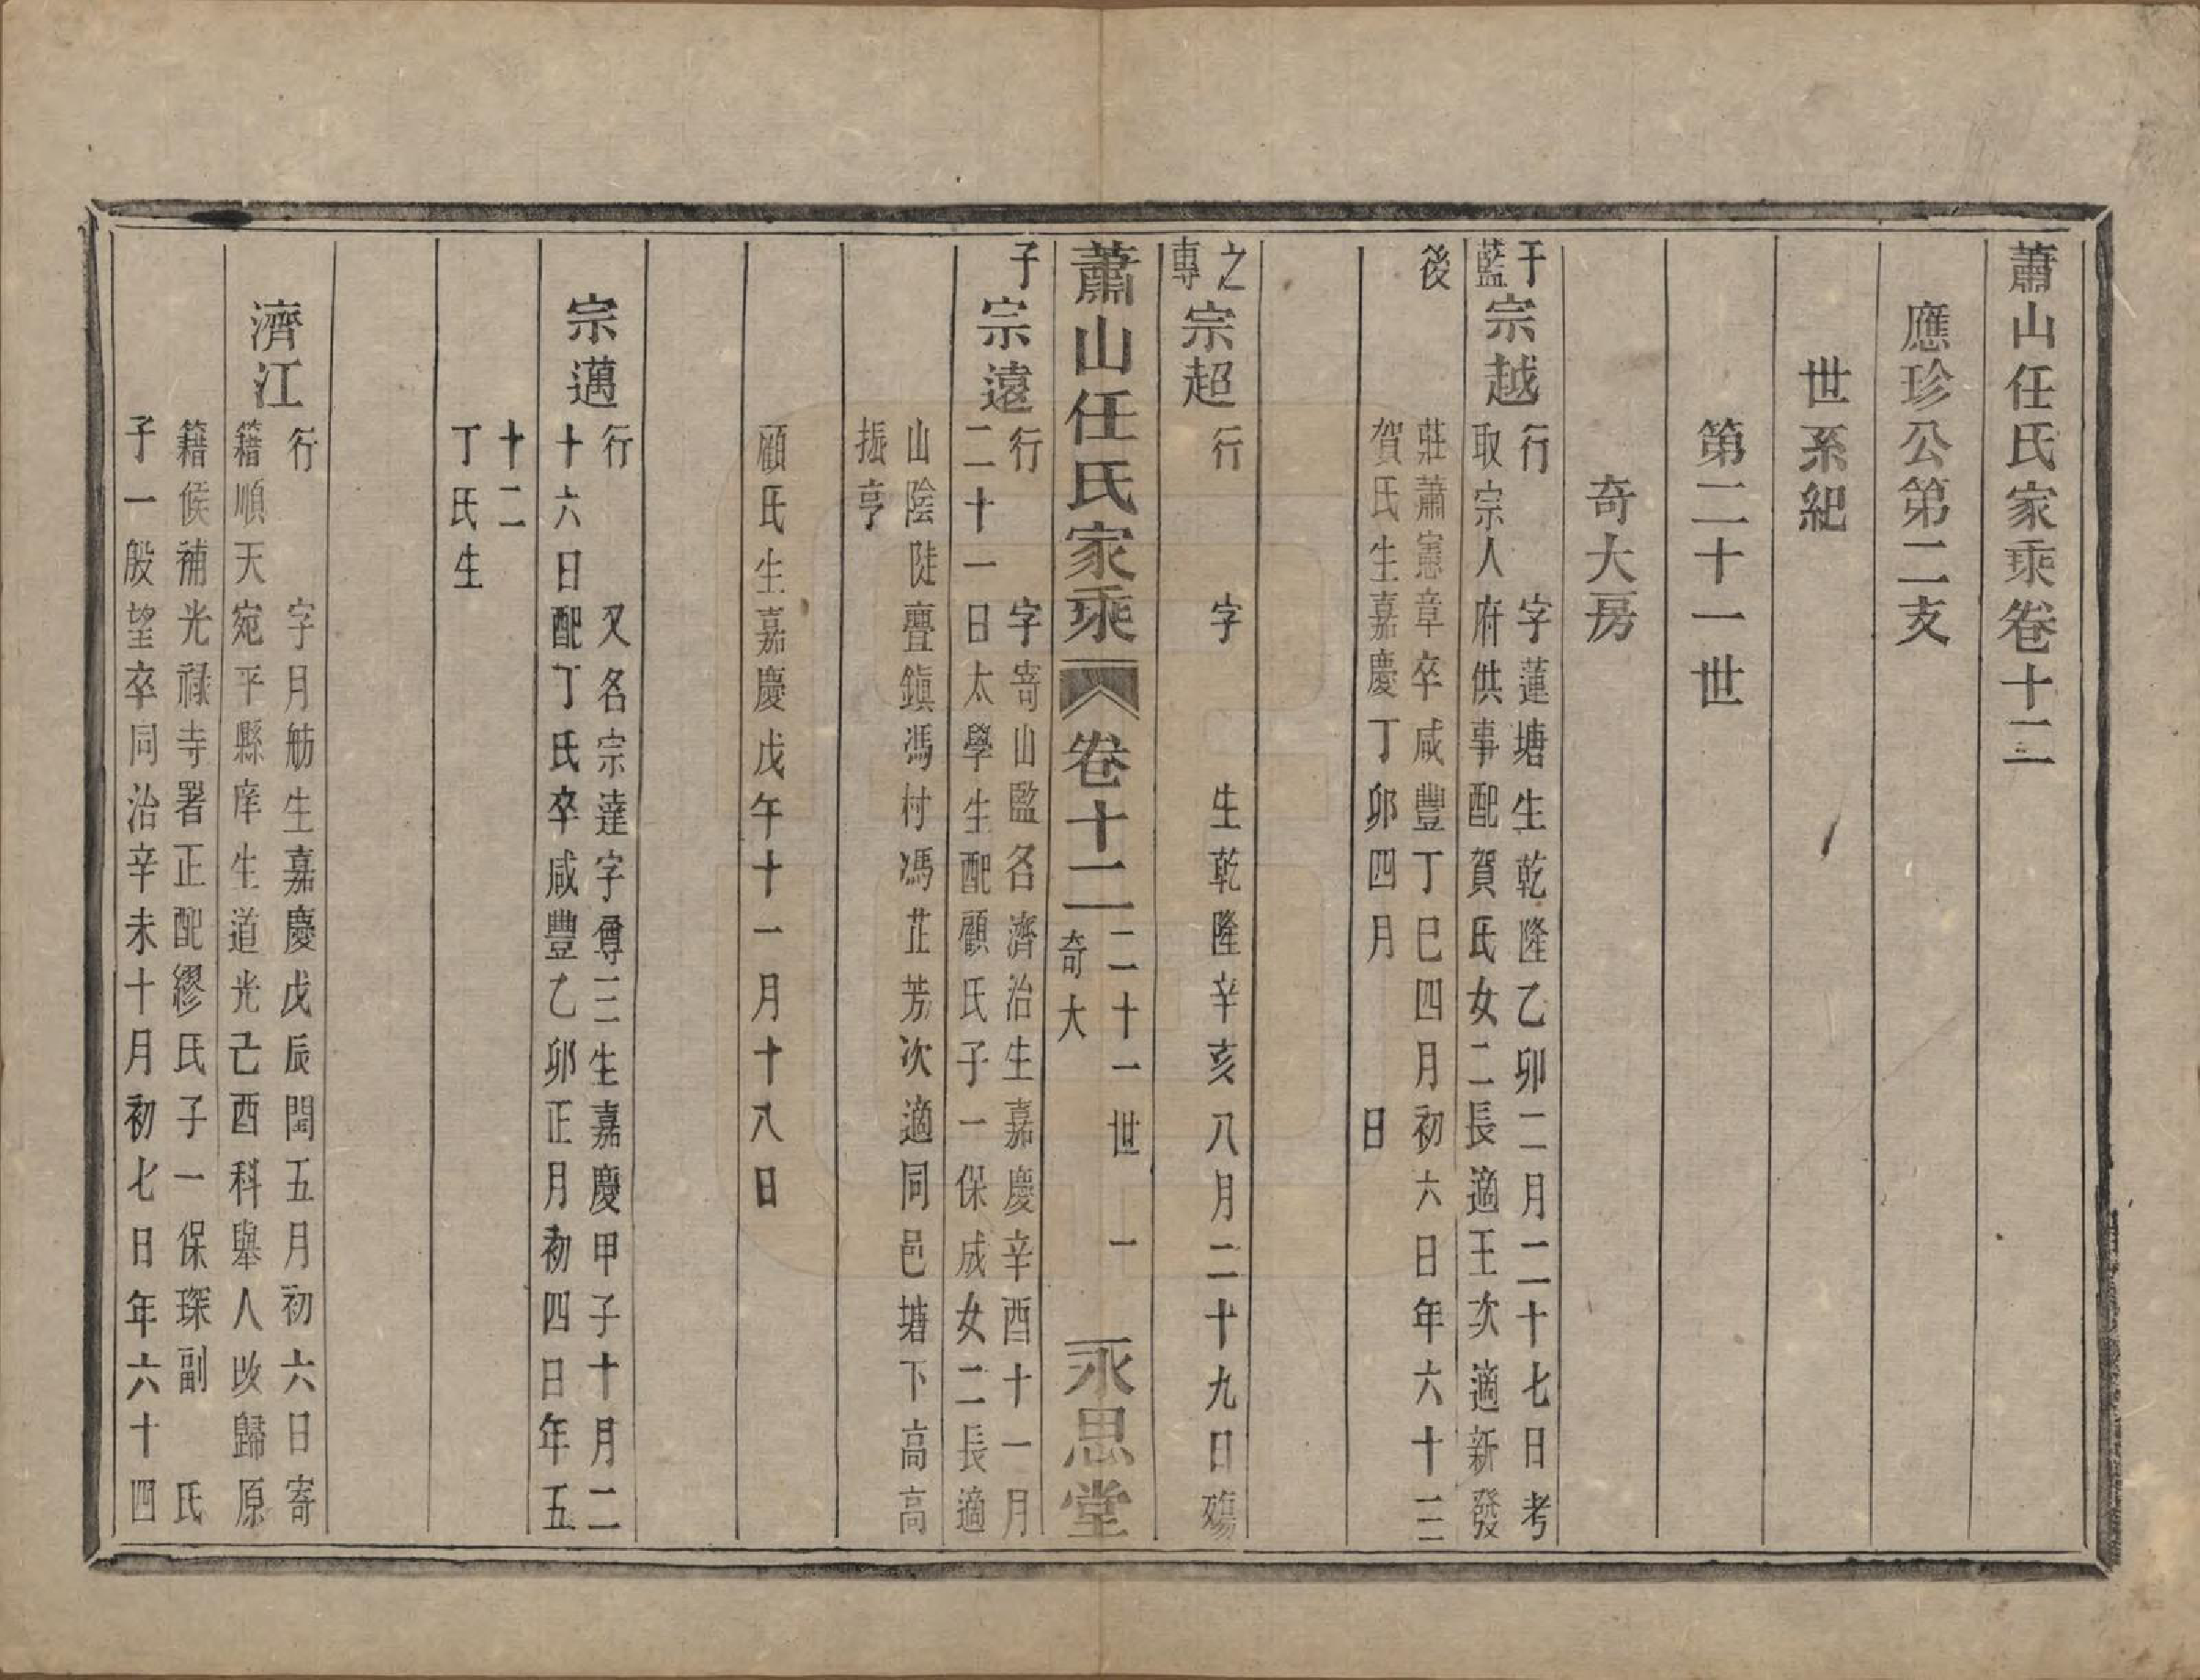 蕭山任氏家乘卷十二
應珍公第二支
世系紀
第二十一世
奇大房
于藍後
宗越
行 字蓮塘生乾隆乙卯二月二十七日考
取宗人府供事配賀氏女二長適王次適新發
莊蕭憲章卒咸豐丁巳四月初六日年六十三
賀氏生嘉慶丁卯四月 日
之專子
宗超
行 字 生乾隆辛亥八月二十九日殤
蕭山任氏家乘 卷十二 二十一世 奇大 一 永思堂
宗遠
行 字寄山監名濟治生嘉慶辛酉十一月
二十一日太學生配顧氏子一保成女二長適
山陰陡亹鎭馮村馮芷芳次適同邑塘下高高
振亨
顧氏生嘉慶戊午十一月十八日
宗邁
行 又名宗達字尊三生嘉慶甲子十月二
十六日配丁氏卒咸豐乙卯正月初四日年五
十二
丁氏生
濟江
行 字月舫生嘉慶戊辰閏五月初六日寄
籍順天宛平縣庠生道光己酉科舉人改歸原
籍候補光祿寺署正配繆氏子一保琛副 氏
子一殷望卒同治辛未十月初七日年六十四